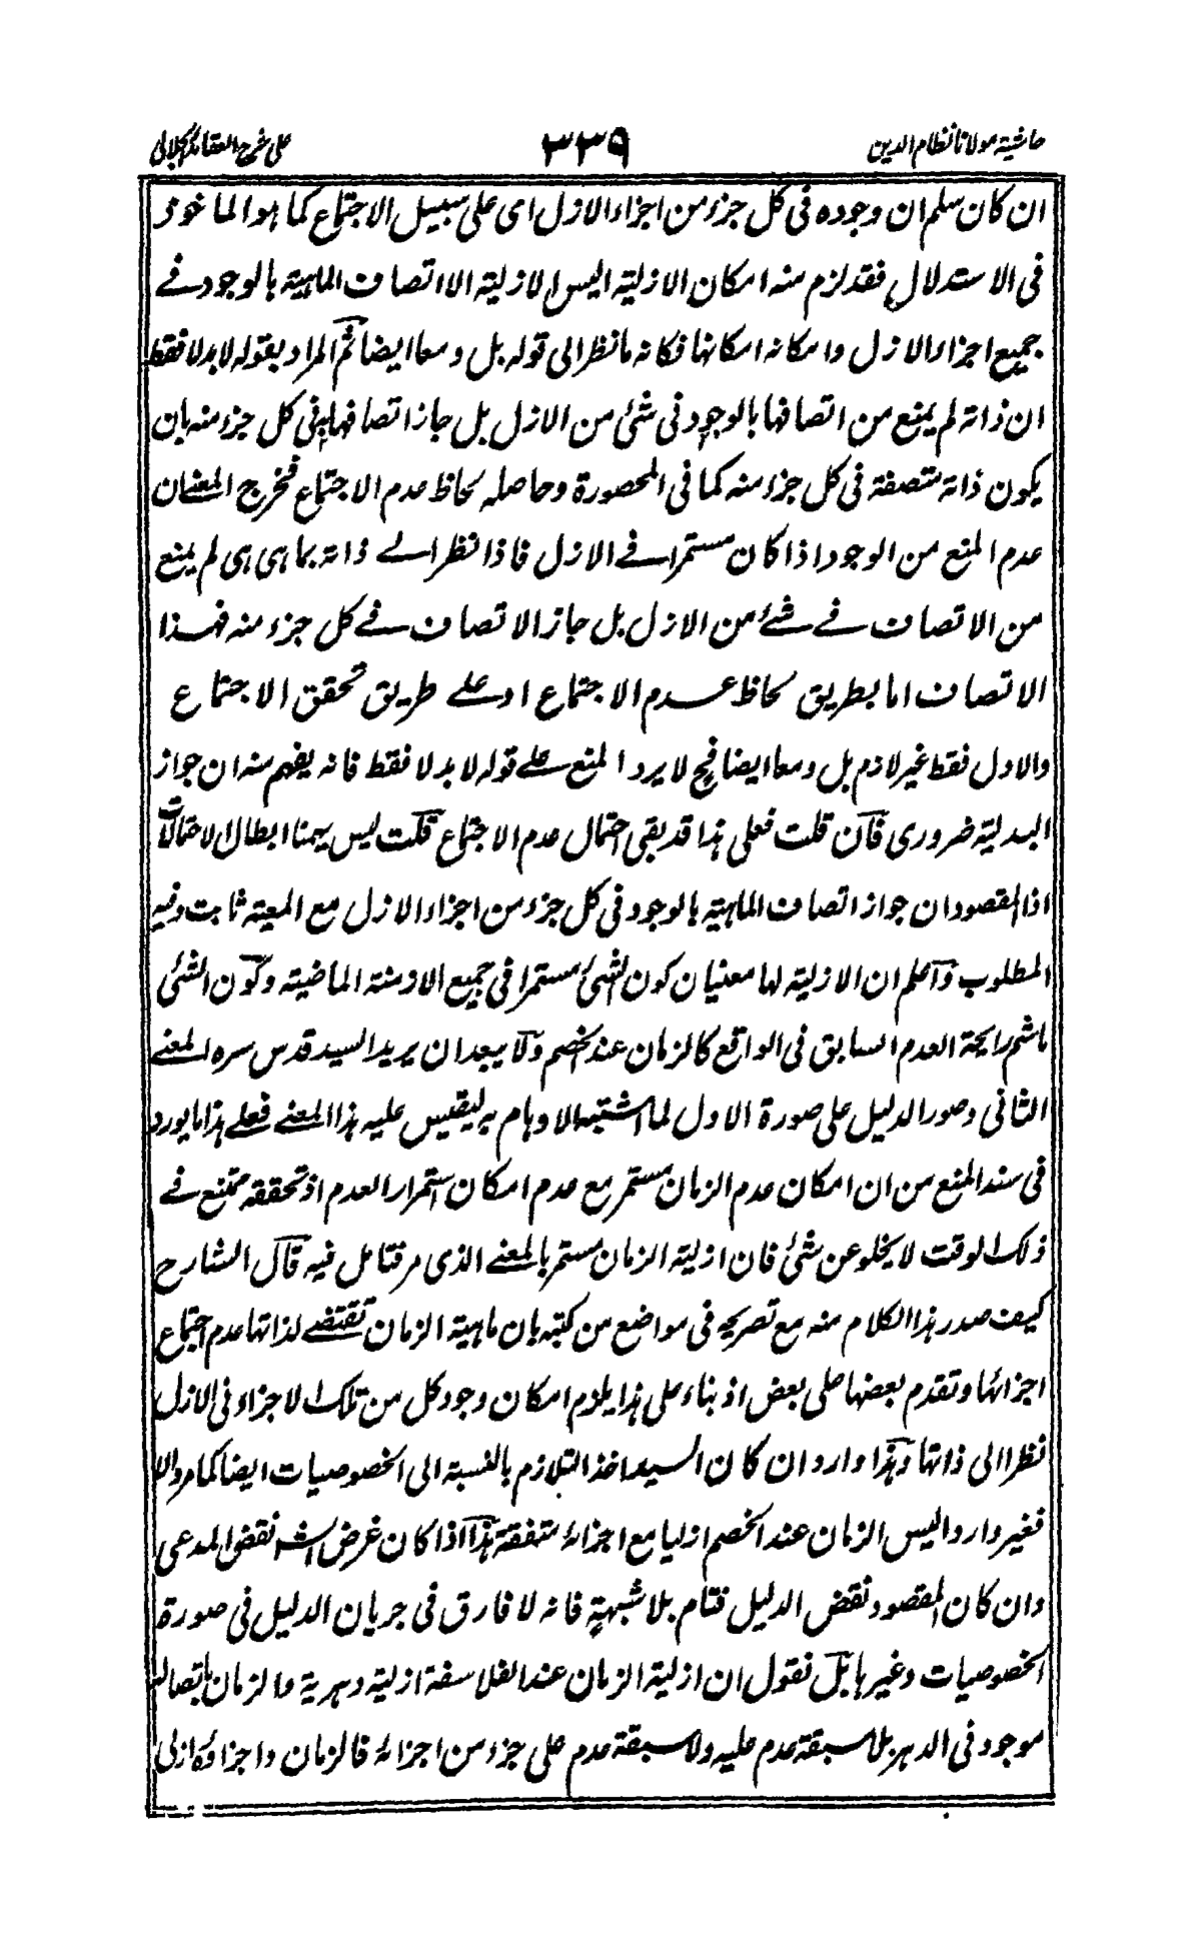 حاشية مولانا نظام الدين ٣٣٩ على شرح العقائد الجلالى
ان كان سلم ان وجوده فى كل جزء من اجزاء الازل اى على سبيل الاجتماع كما هو الماخوذ
فى الاستدلال فقد لزم منه امكان الازلية اليس الازلية الا اتصاف الماهية بالوجود فے
جميع اجزاء الازل وامكانه امكانها فكانه ما نظر الى قوله بل ومعا ايضا ثم المراد بقوله لا بدلا فقط
ان ذاته لم يمنع من اتصافها بالوجود فى شئ من الازل بل جاز اتصافها به فى كل جزء منه بان
يكون ذاته متصفة فى كل جزء منه كما فى المحصورة وحاصله لحاظ عدم الاجتماع فخرج المعنے ان
عدم المنع من الوجود اذا كان مستمرا فے الازل فاذا نظر الے ذاته بما هى هى لم يمنع
من الاتصاف فے شئ من الازل بل جاز الاتصاف فے كل جزء منه فهذا
الاتصاف اما بطريق لحاظ عدم الاجتماع او علے طريق تحقق الاجتماع
والاول فقط غير لازم بل ومعا ايضا فح لا يرد المنع علے قوله لا بدلا فقط فانه يفهم منه ان جواز
البدلية ضرورى فان قلت فعلى هذا قد بقى احتمال عدم الاجتماع قلت ليس يهمنا ابطال الاحتمالات
اذ المقصود ان جواز اتصاف الماهية بالوجود فى كل جزء من اجزاء الازل مع المعية ثابت وفيه
المطلوب واعلم ان الازلية لها معنيان كون الشئ مستمرا فى جميع الازمنة الماضية وكون الشئ
ما شم رايحة العدم السابق فى الواقع كالزمان عند الخصم ولا يبعد ان يريد السيد قدس سره المعنے
الثانى وصور الدليل على صورة الاول لما اشتبه الاوهام به ليقيس عليه هذا المعنے فعلے هذا ما يورد
فى سند المنع من ان امكان عدم الزمان مستمر مع عدم امكان استمرار العدم اذ تحققه ممتنع فے
ذلك الوقت لا يخلو عن شئ فان ازلية الزمان مستمر بالمعنے الذى مر فتامل فيه قال الشارح
كيف صدر هذا الكلام منه مع تصريحه فى مواضع من كتبه بان ماهية الزمان تقتضے لذاتها عدم اجتماع
اجزائها وتقدم بعضها على بعض اذ بناء على هذا يلزم امكان وجود كل من تلك الاجزاء فى الازل
نظرا الى ذاتها وهذا وارد ان كان السيد اخذ التلازم بالنسبة الى الخصوصيات ايضا كما مر والا
فغير وارد اليس الزمان عند الخصم ازليا مع اجزائه متفقة هذا اذا كان غرض الشـ نقض المدعى
وان كان المقصود نقض الدليل فتام بلا شبهة فانه لا فارق فى جريان الدليل فى صورة
الخصوصيات وغيرها بل نقول ان ازلية الزمان عند الفلاسفة ازلية دهرية والزمان باتصاله
موجود فى الدهر بلا سبقة عدم عليه ولا سبقة عدم على جزء من اجزائه فالزمان واجزاؤه ازلى